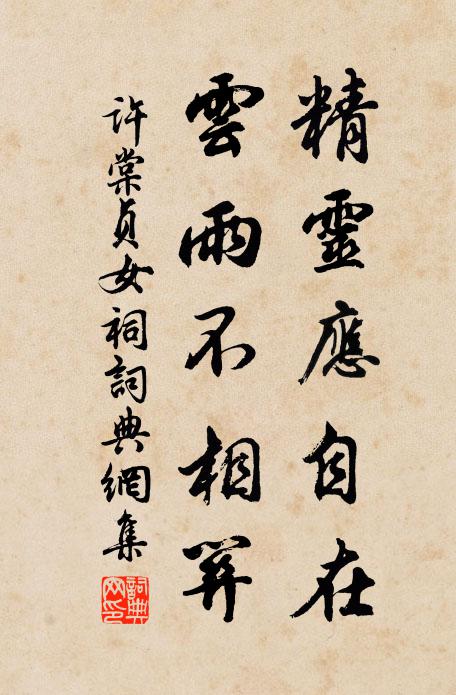 精靈應自在
雲雨不相關
許棠貞女祠詞典網集
詞典
网印